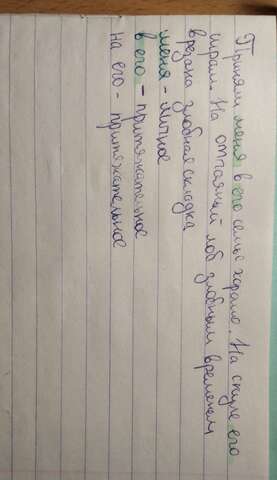 Приняли меня в его семье хорошо. На скуле его
шрам. На отчаянный лоб злобным временем
врезана злобная складка
меня - личное
в его - притяжательное
на его - притяжательное